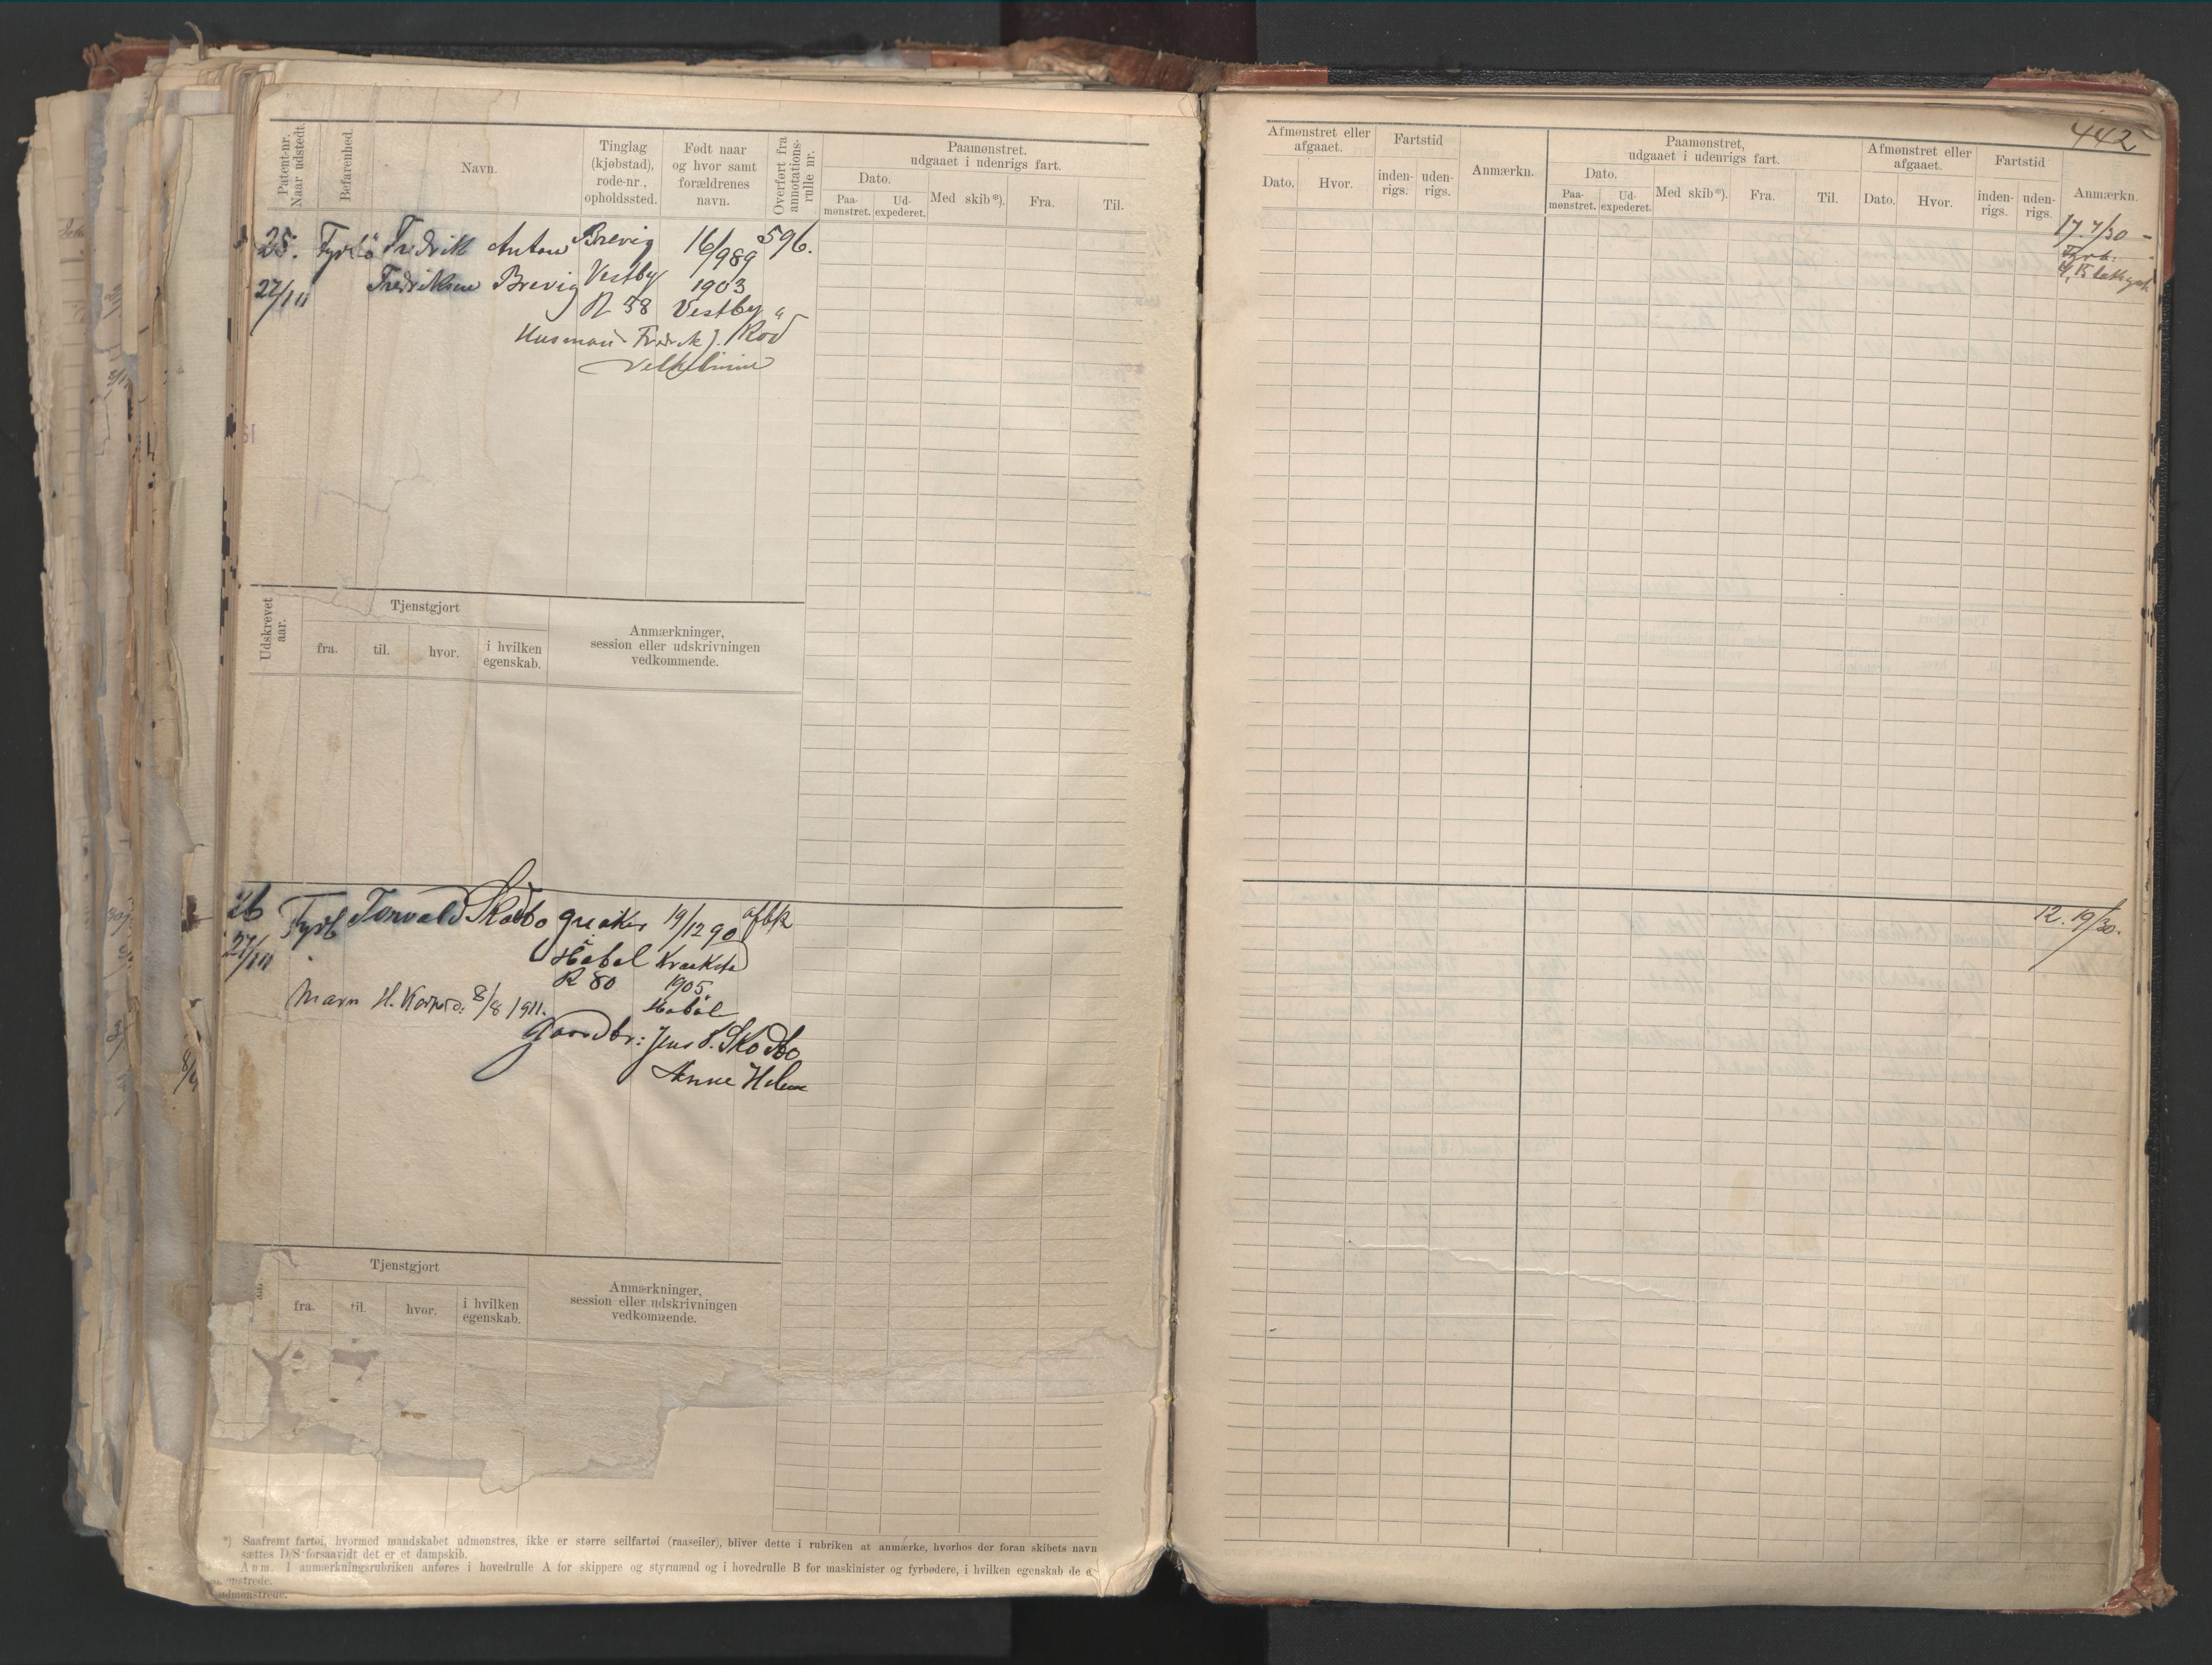 442
Patent-nr.
Naar udstedt.
Befarenhed.
Navn.
Tinglag
(kjøbstad),
rode-nr.,
opholdssted.
Født naar
og hvor samt
forældrenes
navn.
Overført fra
annotations-
rulle nr.
Paamønstret,
udgaaet i udenrigs fart.
Dato.
Paa-
mønstret.
Ud-
expederet.
Med skib*).
Fra.
Til.
25. Fredrik Anton Brevig 16/9 89 596.
27/10 Fredriksen Brevig Vestby 1903
R 38 Vestby
Husmand Fredrik J. Rød
Udskrevet
aar.
Tjenstgjort
fra.
til.
hvor.
i hvilken
egenskab.
Anmærkninger,
session eller udskrivningen
vedkommende.
26 Fyrb Torvald Skodbo Greaker 19/12 90 afbk
27/10 Haabøl Kraakstad
R 80 1905
8/8 1911. Haabøl
Gaardbr: Jens S. Skodbo
Anne Helene
Tjenstgjort
fra.
til.
hvor.
i hvilken
egenskab.
Anmærkninger,
session eller udskrivningen
vedkommende.
*) Saafremt fartøi, hvormed mandskabet udmønstres, ikke er større seilfartøi (raaseiler), bliver dette i rubriken at anmærke, hvorhos der foran skibets navn
sættes D/S forsaavidt det er et dampskib.
Anm. I anmærkningsrubriken anføres i hovedrulle A for skippere og styrmænd og i hovedrulle B for maskinister og fyrbødere, i hvilken egenskab de e
mønstrede.
udmønstrede.
Afmønstret eller
afgaaet.
Dato.
Hvor.
Fartstid
inden-
rigs.
uden-
rigs.
Anmærkn.
Paamønstret,
udgaaet i udenrigs fart.
Dato.
Paa-
mønstret.
Ud-
expederet.
Med skib*).
Fra.
Til.
Afmønstret eller
afgaaet.
Dato.
Hvor.
Fartstid
inden-
rigs.
uden-
rigs.
Anmærkn.
17. 7/30 -
Fyrb.
12. 19/30.